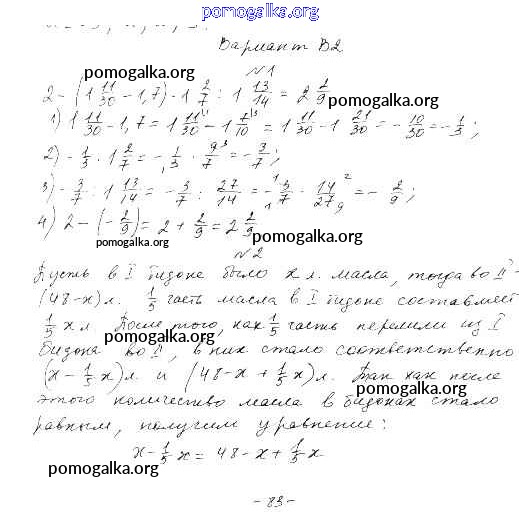 pomogalka.org
Вариант В2
№1
2-(1 11/30-1,7)·1 2/7:1 13/14=2 2/9
pomogalka.org
1) 1 11/30-1,7=1 11/30-1 7/10=1 11/30-1 21/30=-10/30=-1/3;
2) -1/3·1 2/7=-1/3·9/7=-3/7;
3) -3/7:1 13/14=-3/7:27/14=-3/7·14/27=-2/9;
4) 2-(-2/9)=2+2/9=2 2/9
pomogalka.org
pomogalka.org
№2
Пусть в I бидоне было x л. масла, тогда во II -
(48-x) л. 1/5 часть масла в I бидоне составляет
1/5 x л. После того, как 1/5 часть перелили из I
pomogalka.org
бидона во II, в них стало соответственно
(x-1/5 x) л. и (48-x+1/5 x) л. Так как после
pomogalka.org
этого количество масла в бидонах стало
равным, получим уравнение:
x-1/5 x=48-x+1/5 x
pomogalka.org
-83-